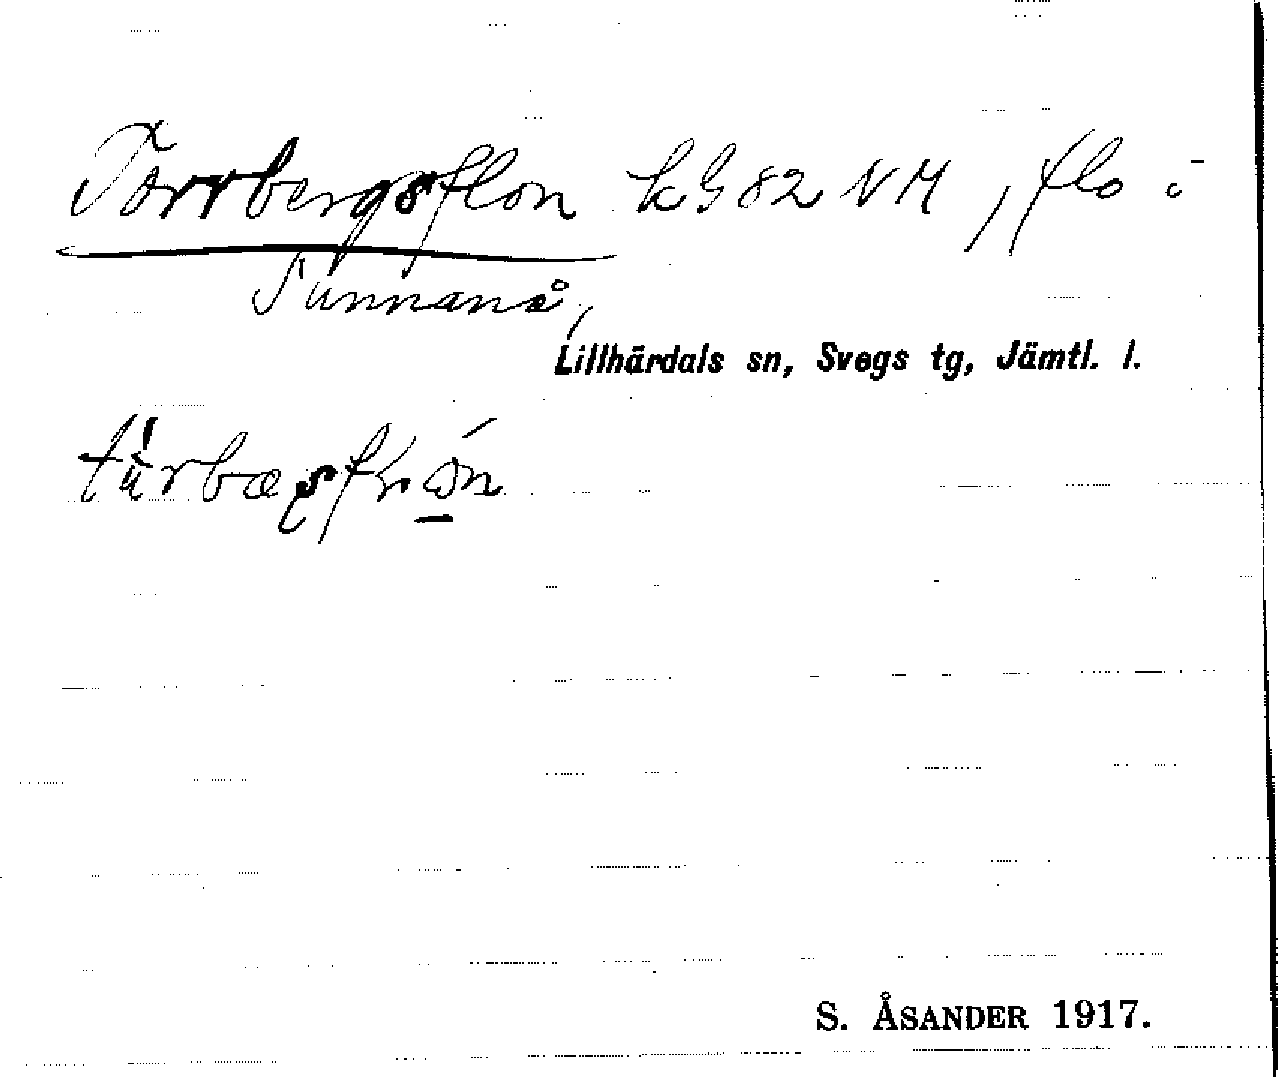 Torrbergsflon kG 82 NM, flo i
Tunnanå,
Lillhärdals sn, Svegs tg, Jämtl. l.
S. ÅSANDER 1917.